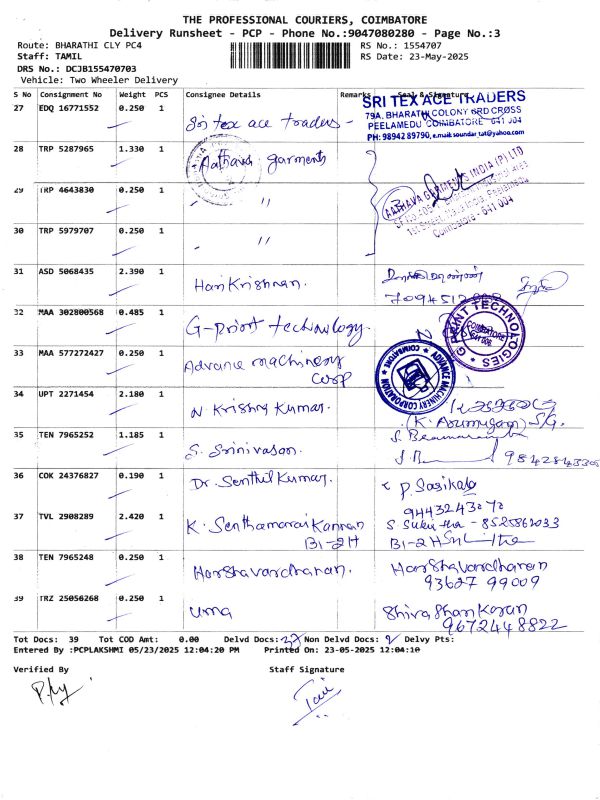 THE PROFESSIONAL COURIERS, COIMBATORE
Delivery Runsheet - PCP - Phone No.:9047080280 - Page No.:3
Route: BHARATHI CLY PC4 RS No.: 1554707
Staff: TAMIL RS Date: 23-May-2025
DRS No.: DCJB155470703
Vehicle: Two Wheeler Delivery
S No Consignment No Weight PCS Consignee Details Remarks Seal & Signature
27 EDQ 16771552 0.250 1 Sri tex ace traders -
SRI TEX ACE TRADERS
79A, BHARATHI COLONY 6RD CROSS
PEELAMEDU COIMBATORE - 641 004
PH: 98942 89790, e.mail: soundar_tat@yahoo.com
28 TRP 5287965 1.330 1 Aathava garments
AATHAVA GARMENTS INDIA (P) LTD
Coimbatore - 641 004
29 TRP 4643830 0.250 1 - "
30 TRP 5979707 0.250 1 - "
31 ASD 5068435 2.390 1 Hari Krishnan.
32 MAA 302800568 0.485 1 G-print technology.
G PRINT TECHNOLOGIES
COIMBATORE
641 004
33 MAA 577272427 0.250 1 Advance machinery
Corp
ADVANCE MACHINERY CORPORATION
COIMBATORE
34 UPT 2271454 2.180 1 N Krishna Kumar.
(K. Arumugam) S/G.
35 TEN 7965252 1.185 1 S. Srinivasan.
36 COK 24376827 0.190 1 Dr. Senthil Kumar. P. Sasikala
9443243072
37 TVL 2908289 2.420 1 K. Senthamarai Kannan S Sukirtha - 8525862033
B1-2H B1-2H
38 TEN 7965248 0.250 1 Harshavardharan. Harshavardharan
93627 99009
39 TRZ 25056268 0.250 1 Uma Shivashankaran
9672448822
Tot Docs: 39 Tot COD Amt: 0.00 Delvd Docs: 37 Non Delvd Docs: 2 Delvy Pts:
Entered By :PCPLAKSHMI 05/23/2025 12:04:20 PM Printed On: 23-05-2025 12:04:10
Verified By Staff Signature